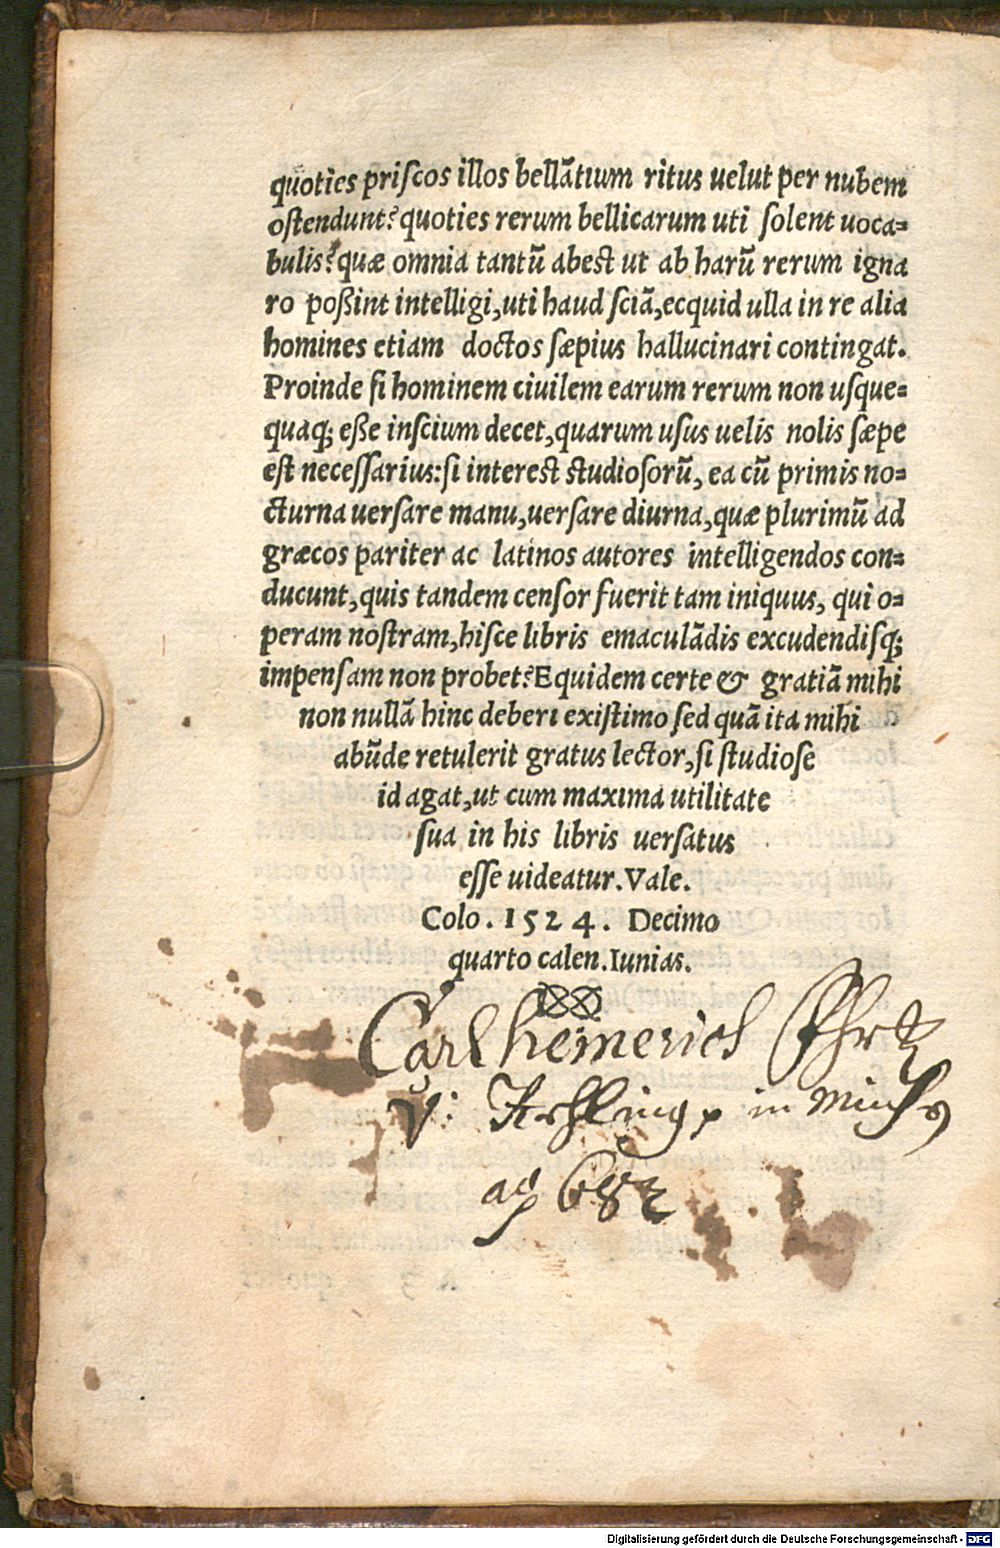 quoties priſcos illos bellãtium ritus uelut per nubem
oſtendunt? quoties rerum bellicarum uti ſolent uoca=
bulis? quæ omnia tantũ abest ut ab harũ rerum igna
ro poßint intelligi, uti haud ſciã, ecquid ulla in re alia
homines etiam doctos ſæpius hallucinari contingat.
Proinde ſi hominem ciuilem earum rerum non uſque=
quaq; eße inſcium decet, quarum uſus uelis nolis ſæpe
eſt neceſſarius: ſi interest studioſorũ, ea cũ primis no=
cturna uerſare manu, uerſare diurna, quæ plurimũ ad
græcos pariter ac latinos autores intelligendos con=
ducunt, quis tandem cenſor fuerit tam iniquus, qui o=
peram noſtram, hiſce libris emaculãdis excudendiſq;
impenſam non probet? Equidem certe & gratiã mihi
non nullã hinc deberi exiſtimo ſed quã ita mihi
abũde retulerit gratus lector, ſi ſtudioſe
id agat, ut cum maxima utilitate
ſua in his libris uerſatus
eſſe uideatur. Vale.
Colo. 1524. Decimo
quarto calen. Iunias.
Carl heinerich
V: in
682
Digitalisierung gefördert durch die Deutsche Forschungsgemeinschaft - DFG